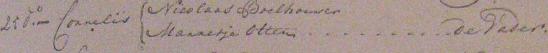 250. Cornelis { Nicolaas Boelhouwer
Mannetje Otten . . . . . . . . . de Vader.